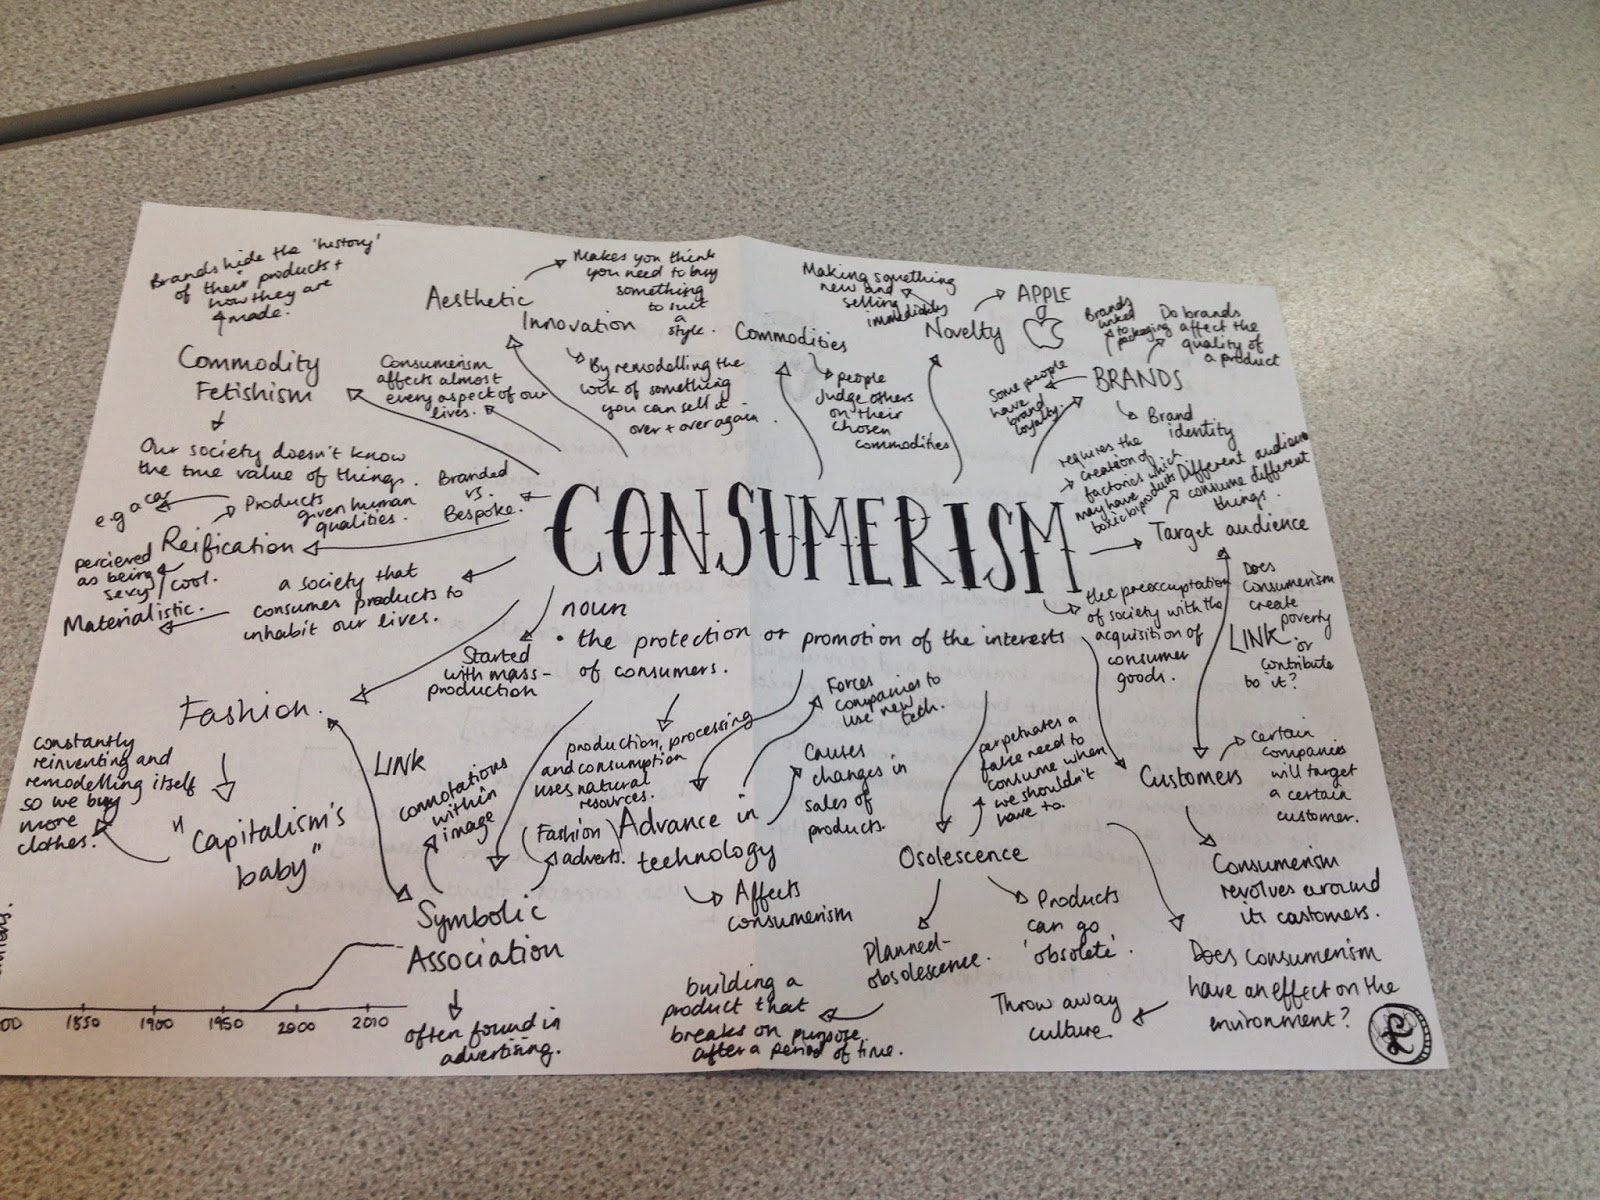 Brands hide the 'history'
of their products +
how they are
made.
Commodity
Fetishism
Our society doesn't know
the true value of things.
Aesthetic
Innovation
Makes you think
you need to buy
something
to suit
a
style.
By remodelling the
look of something
you can sell it
over + over again.
Consumerism
affects almost
every aspect of our
lives.
Commodities
people
Judge others
on their
chosen
commodities
Making something
new and
selling
immediately
Novelty
APPLE
BRANDS
Brands
linked
to
packaging
Do brands
affect the
quality of
a product
Some people
have
brand
loyalty.
Brand
identity
Branded
vs.
Bespoke.
Reification
Products
given human
qualities.
e.g a car
percieved
as being
sexy/cool.
a society that
consumes products to
inhabit our lives.
Materialistic.
CONSUMERISM
noun
• the protection or promotion of the interests
of consumers.
requires the
creation of
factories which
may have
toxic biproducts
Target audience
Different audiences
consume different
things.
the preoccuptation
of society with the
acquisition of
consumer
goods.
Does
Consumerism
create
poverty
or
contribute
to it?
LINK
Started
with mass-
production
Fashion.
"Capitalism's
baby"
constantly
reinventing and
remodelling itself
so we buy
more
clothes.
LINK
Symbolic
Association
connotations
within
image
(Fashion
adverts.
often found in
advertising.
production, processing
and consumption
uses natural
resources.
Advance in
technology
Forces
companies to
use new
tech.
Causes
changes in
sales of
products.
Affects
consumerism
Osolescence
perpetuates a
fake need to
consume when
we shouldn't
have to.
Planned-
obsolescence.
building a
product that
breaks on purpose
after a period of time.
Products
can go
'obsolete'.
Customers
Certain
companies
will target
a certain
customer.
Consumerism
revolves around
its customers.
Does consumerism
have an effect on the
environment?
Throw away
culture
1850 1900 1950 2000 2010